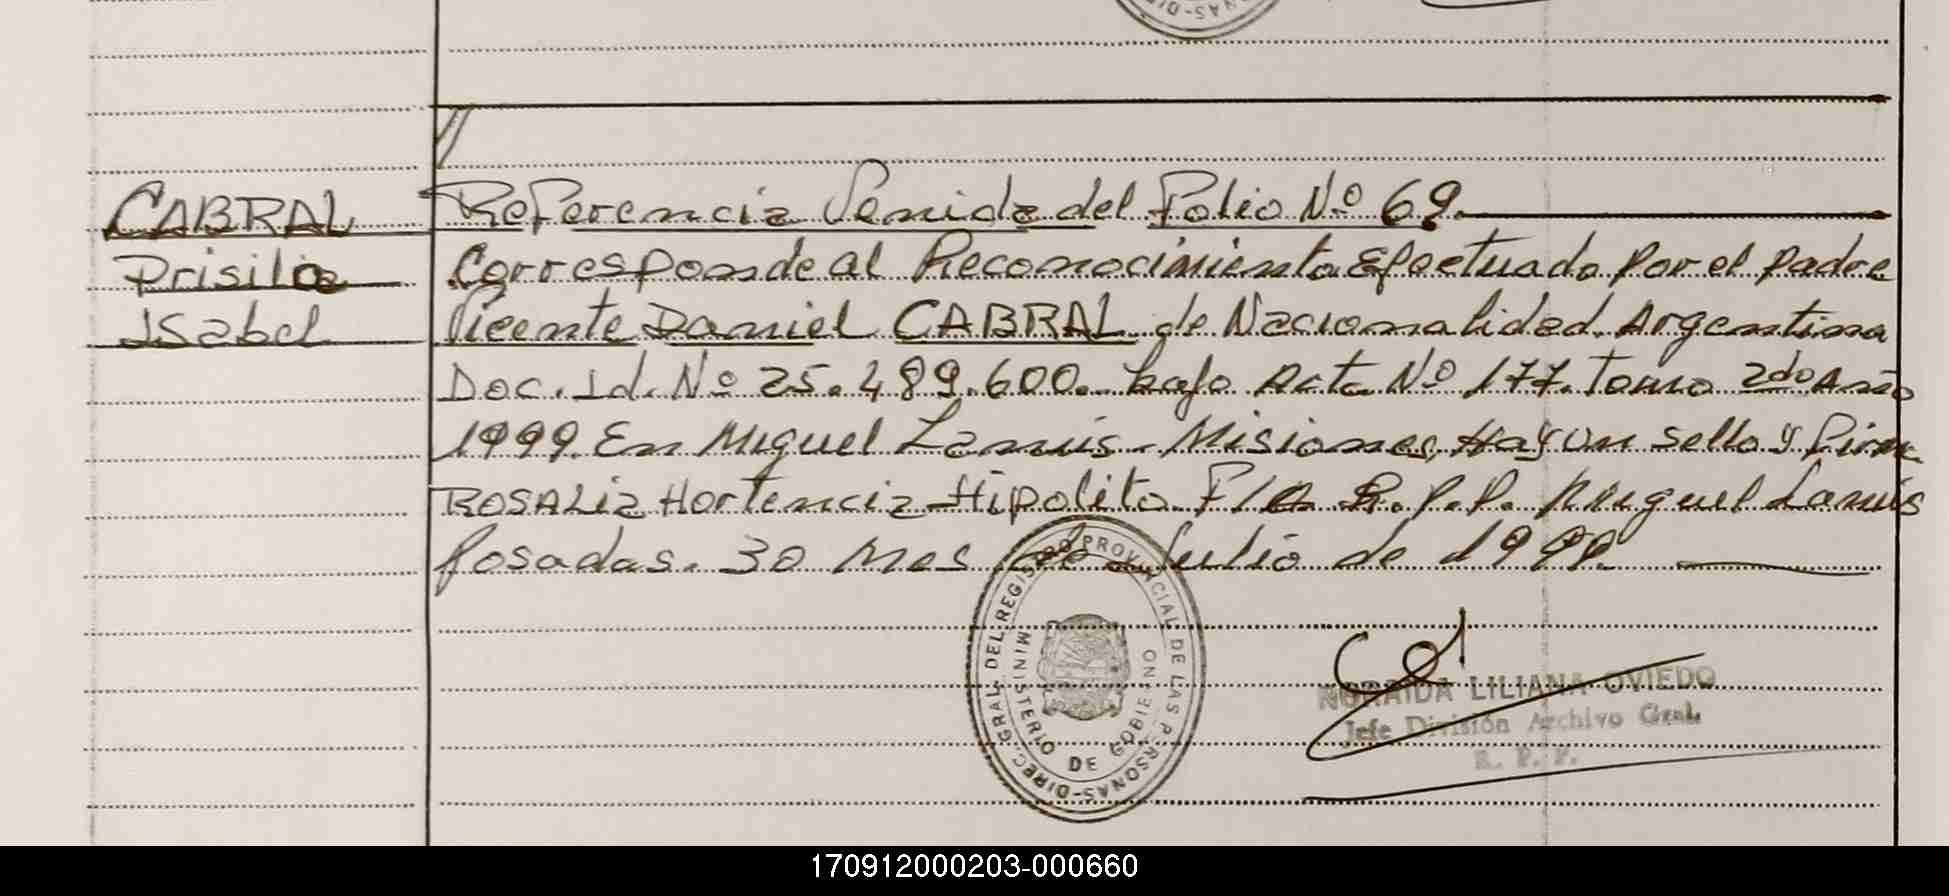 CABRAL
Prisilia
Isabel
Referencia Venida del Folio Nº 69.
Corresponde al Reconocimiento Efectuado por el padre
Vicente Daniel CABRAL de Nacionalidad Argentina
Doc. Id. Nº 25.489.600. bajo Acta Nº 177. Tomo 2do Año
1999. En Miguel Lanús - Misiones, Hay un sello y firma
ROSALia Hortencia Hipolito R.P.P. Miguel Lanús
Posadas. 30 Mes de Julio de 1999.
DIREC. GRAL. DEL REGISTRO PROVINCIAL DE LAS PERSONAS
MINISTERIO DE GOBIERNO
NORAIDA LILIANA OVIEDO
Jefe División Archivo Gral.
R. P. P.
170912000203-000660